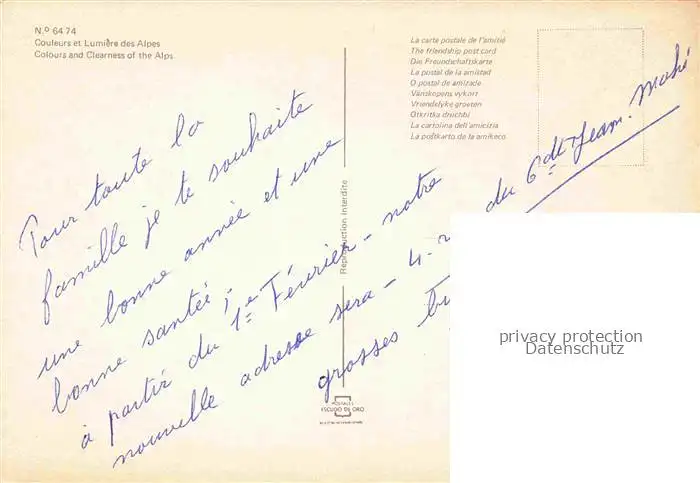 N.º 6474
Couleurs et Lumière des Alpes
Colours and Clearness of the Alps
La carte postale de l'amitié
The friendship post card
Die Freundschaftskarte
La postal de la amistad
O postal de amizade
Vänskapens vykort
Vriendelyke groeten
Otkritka druchbi
La cartolina dell'amicizia
La poŝtkarto de la amikeco
Pour toute la
famille je te souhaite
une bonne année et une
bonne santée ;
à partir du 1er Février - notre
nouvelle adresse sera - 4
du 6 dt Jean
grosses
Reproduction interdite
POSTALES
ESCUDO DE ORO
privacy protection
Datenschutz